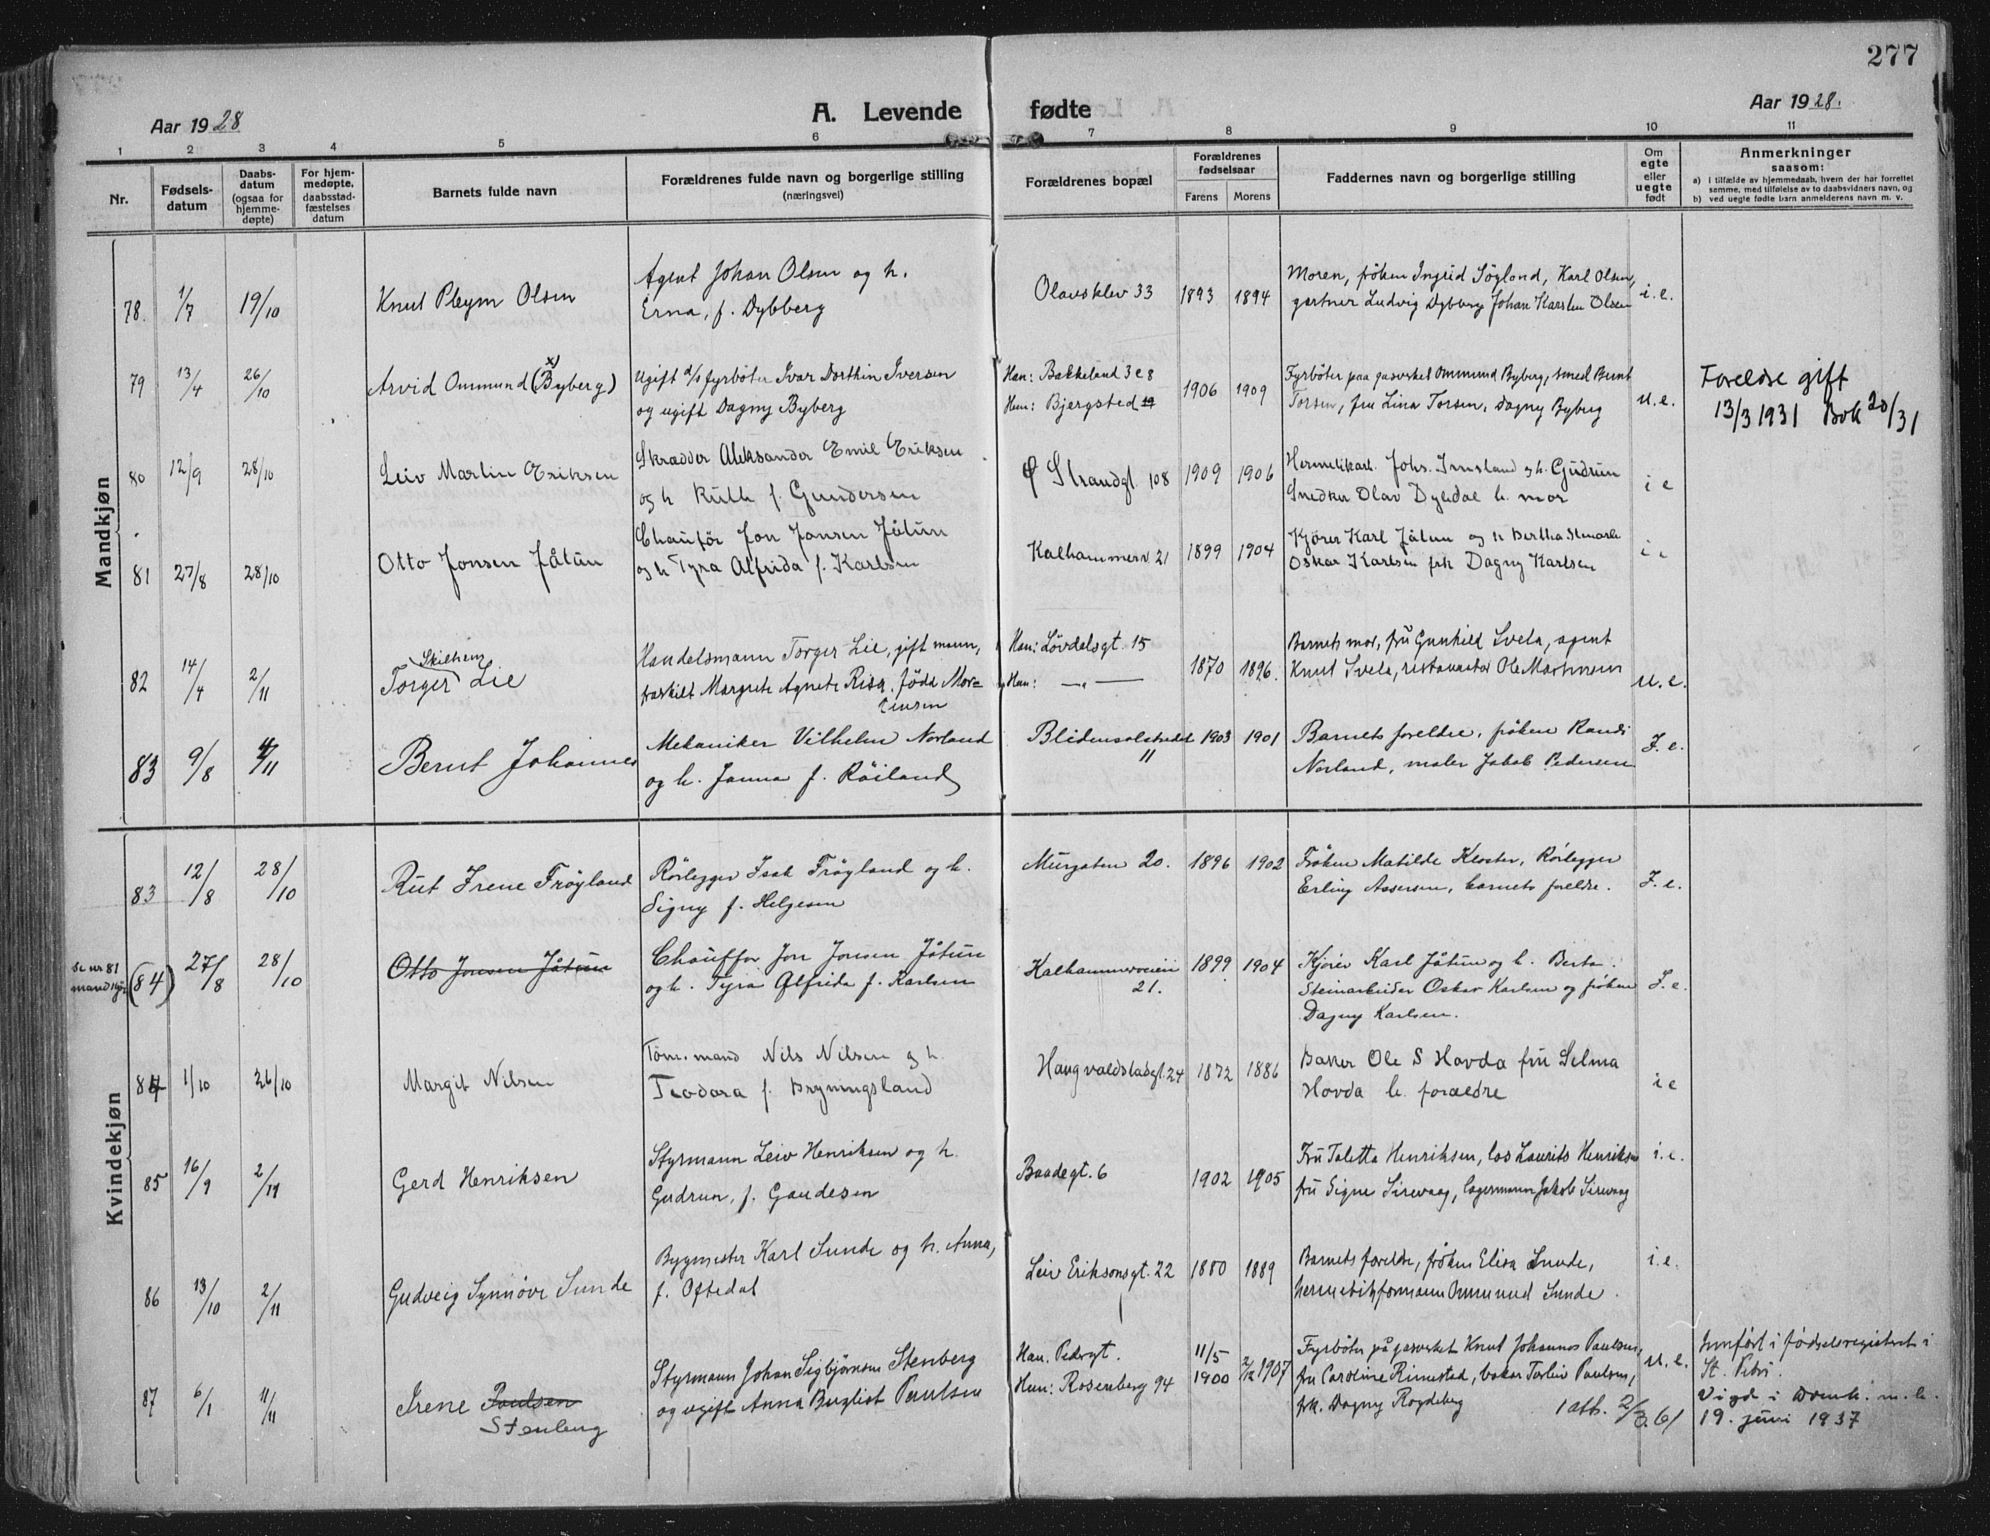 277
Aar 1928
A. Levende fødte
Aar 1928.
1 2 3 4 5 6 7 8 9 10 11
Nr.
Fødsels-
datum
Daabs-
datum
(ogsaa for
hjemme-
døpte)
For hjem-
medøpte,
daabsstad-
fæstelses
datum
Barnets fulde navn
Forældrenes fulde navn og borgerlige stilling
(næringsvei)
Forældrenes bopæl
Forældrenes
fødselsaar
Farens Morens
Faddernes navn og borgerlige stilling
Om
egte
eller
uegte
født
Anmerkninger
saasom:
a) i tilfælde av hjemmedaab, hvem der har forrettet
semme, med tilføielse av to daabsvidners navn, og
b) ved uegte fødte barn anmelderens navn m. v.
Mandkjøn
78. 1/7 19/10 Knut Pleym Olsen
Agent Johan Olsen og h.
Erna, f. Dybberg
Olavsklev 33 1893 1894
Moren, frøken Ingrid Søyland, Karl Olsen,
gartner Ludvig Dybberg Johan Karsten Olsen
i. e.
79 13/4 26/10 Arvid Ommund (Byberg) x)
Ugift fyrbøter Ivar Dorthin Iversen
og ugift Dagny Byberg
Han: Bakkeland 3 e 8
Hun: Bjergsted 19
1906 1909
Fyrbøter paa gasverket Ommund Byberg, smed Bernt
Torsen, fru Lina Torsen, Dagny Byberg
u. e.
Foreldre gift
13/3 1931 Bok 20/31
80 12/9 28/10 Leiv Martin Eriksen
Skrædder Aleksander Emil Eriksen
og h Ruth f. Gundersen
Ø Strandgt 108 1909 1906
Hermetikarb. Johs. Imsland og h. Gudrun
Snedker Olav Dybdal b. mor
i e
81 27/8 28/10 Otto Jonsen Jåtun
Chaufør Jon Jonsen Jåtun
og h Tyra Alfrida f. Karlsen
Kalhammerv 21 1899 1904
Kjører Karl Jåtun og h Bertha Stenarb
Oskar Karlsen frk Dagny Karlsen
i e
82 14/4 2/11 Torger Skilhem Lie
Handelsmann Torger Lie, gift mann,
fraskilt Margrete Agnete Risa, født Mor=
tensen
Han: Lövdalsgt. 15
Hun: —„—
1870 1896.
Barnets mor, fru Gunhild Svela, agent
Knut Svela, restauratør Ole Mortensen
u. e.
83 9/8 4/11 Bernt Johannes
Mekaniker Vilhelm Norland
og h. Janna f. Röiland
Blidensolstredet
11
1903 1901
Barnets foreldre, frøken Randi
Norland, maler Jakob Pedersen
I. e.
Kvindekjøn
83 12/8 28/10 Rut Irene Frøyland
Rørlegger Isak Frøyland og h.
Signy f. Helgesen
Murgaten 20. 1896 1902
Frøken Matilde Kloster, Rørlegger
Erling Assersen, barnets foreldre.
I. e.
se nr 81
mandkjøn
(84) 27/8 28/10 Otto Jonsen Jåtun
Chauffør Jon Jonsen Jåtun
og h. Tyra Alfrida f. Karlsen
Kalhammerveien
21.
1899 1904
Kjører Karl Jåtun og h. Berta.
Steinarbeider Oskar Karlsen og frøken
Dagny Karlsen.
I. e.
84 1/10 26/10 Margit Nilsen
Töm. mand Nils Nilsen og h.
Teodora f. Bryningsland
Haugvaldstadgt. 24 1872 1886
Baker Ole S Hovda fru Selma
Hovda b. forældre
i e
85 16/9 2/11 Gerd Henriksen
Styrmann Leiv Henriksen og h.
Gudrun, f. Gaudesen
Baadegt. 6 1902 1905
Fru Taletta Henriksen, los Laurits Henriksen
fru Signe Sirevaag, lagermann Jakob Sirevaag
i. e.
86 13/10 2/11 Gudveig Synnøve Sunde
Bygmester Karl Sunde og h. Anna,
f. Oftedal
Leiv Eriksonsgt. 22 1880 1889
Barnets foreldre, frøken Elisa Sunde,
hermetikformann Ommund Sunde.
i. e.
87 6/1 11/11 Irene Paulsen
Stenberg
Styrmann Johan Sigbjørnsen Stenberg
og ugift Anna Bergliot Paulsen
Han: Pedersgt.
Hun: Rosenberg 94
11/5
1900
2/12 1907
Fyrbøter på gasverket Knut Johannes Paulsen,
fru Caroline Rimestad, baker Torleiv Paulsen,
frk. Dagny Rogdeberg
1 att. 2/3. 61
u. e.
Innført i fødselsregisteret i
St. Petri.
Vigd i Domk. m. h.
19. juni 1937